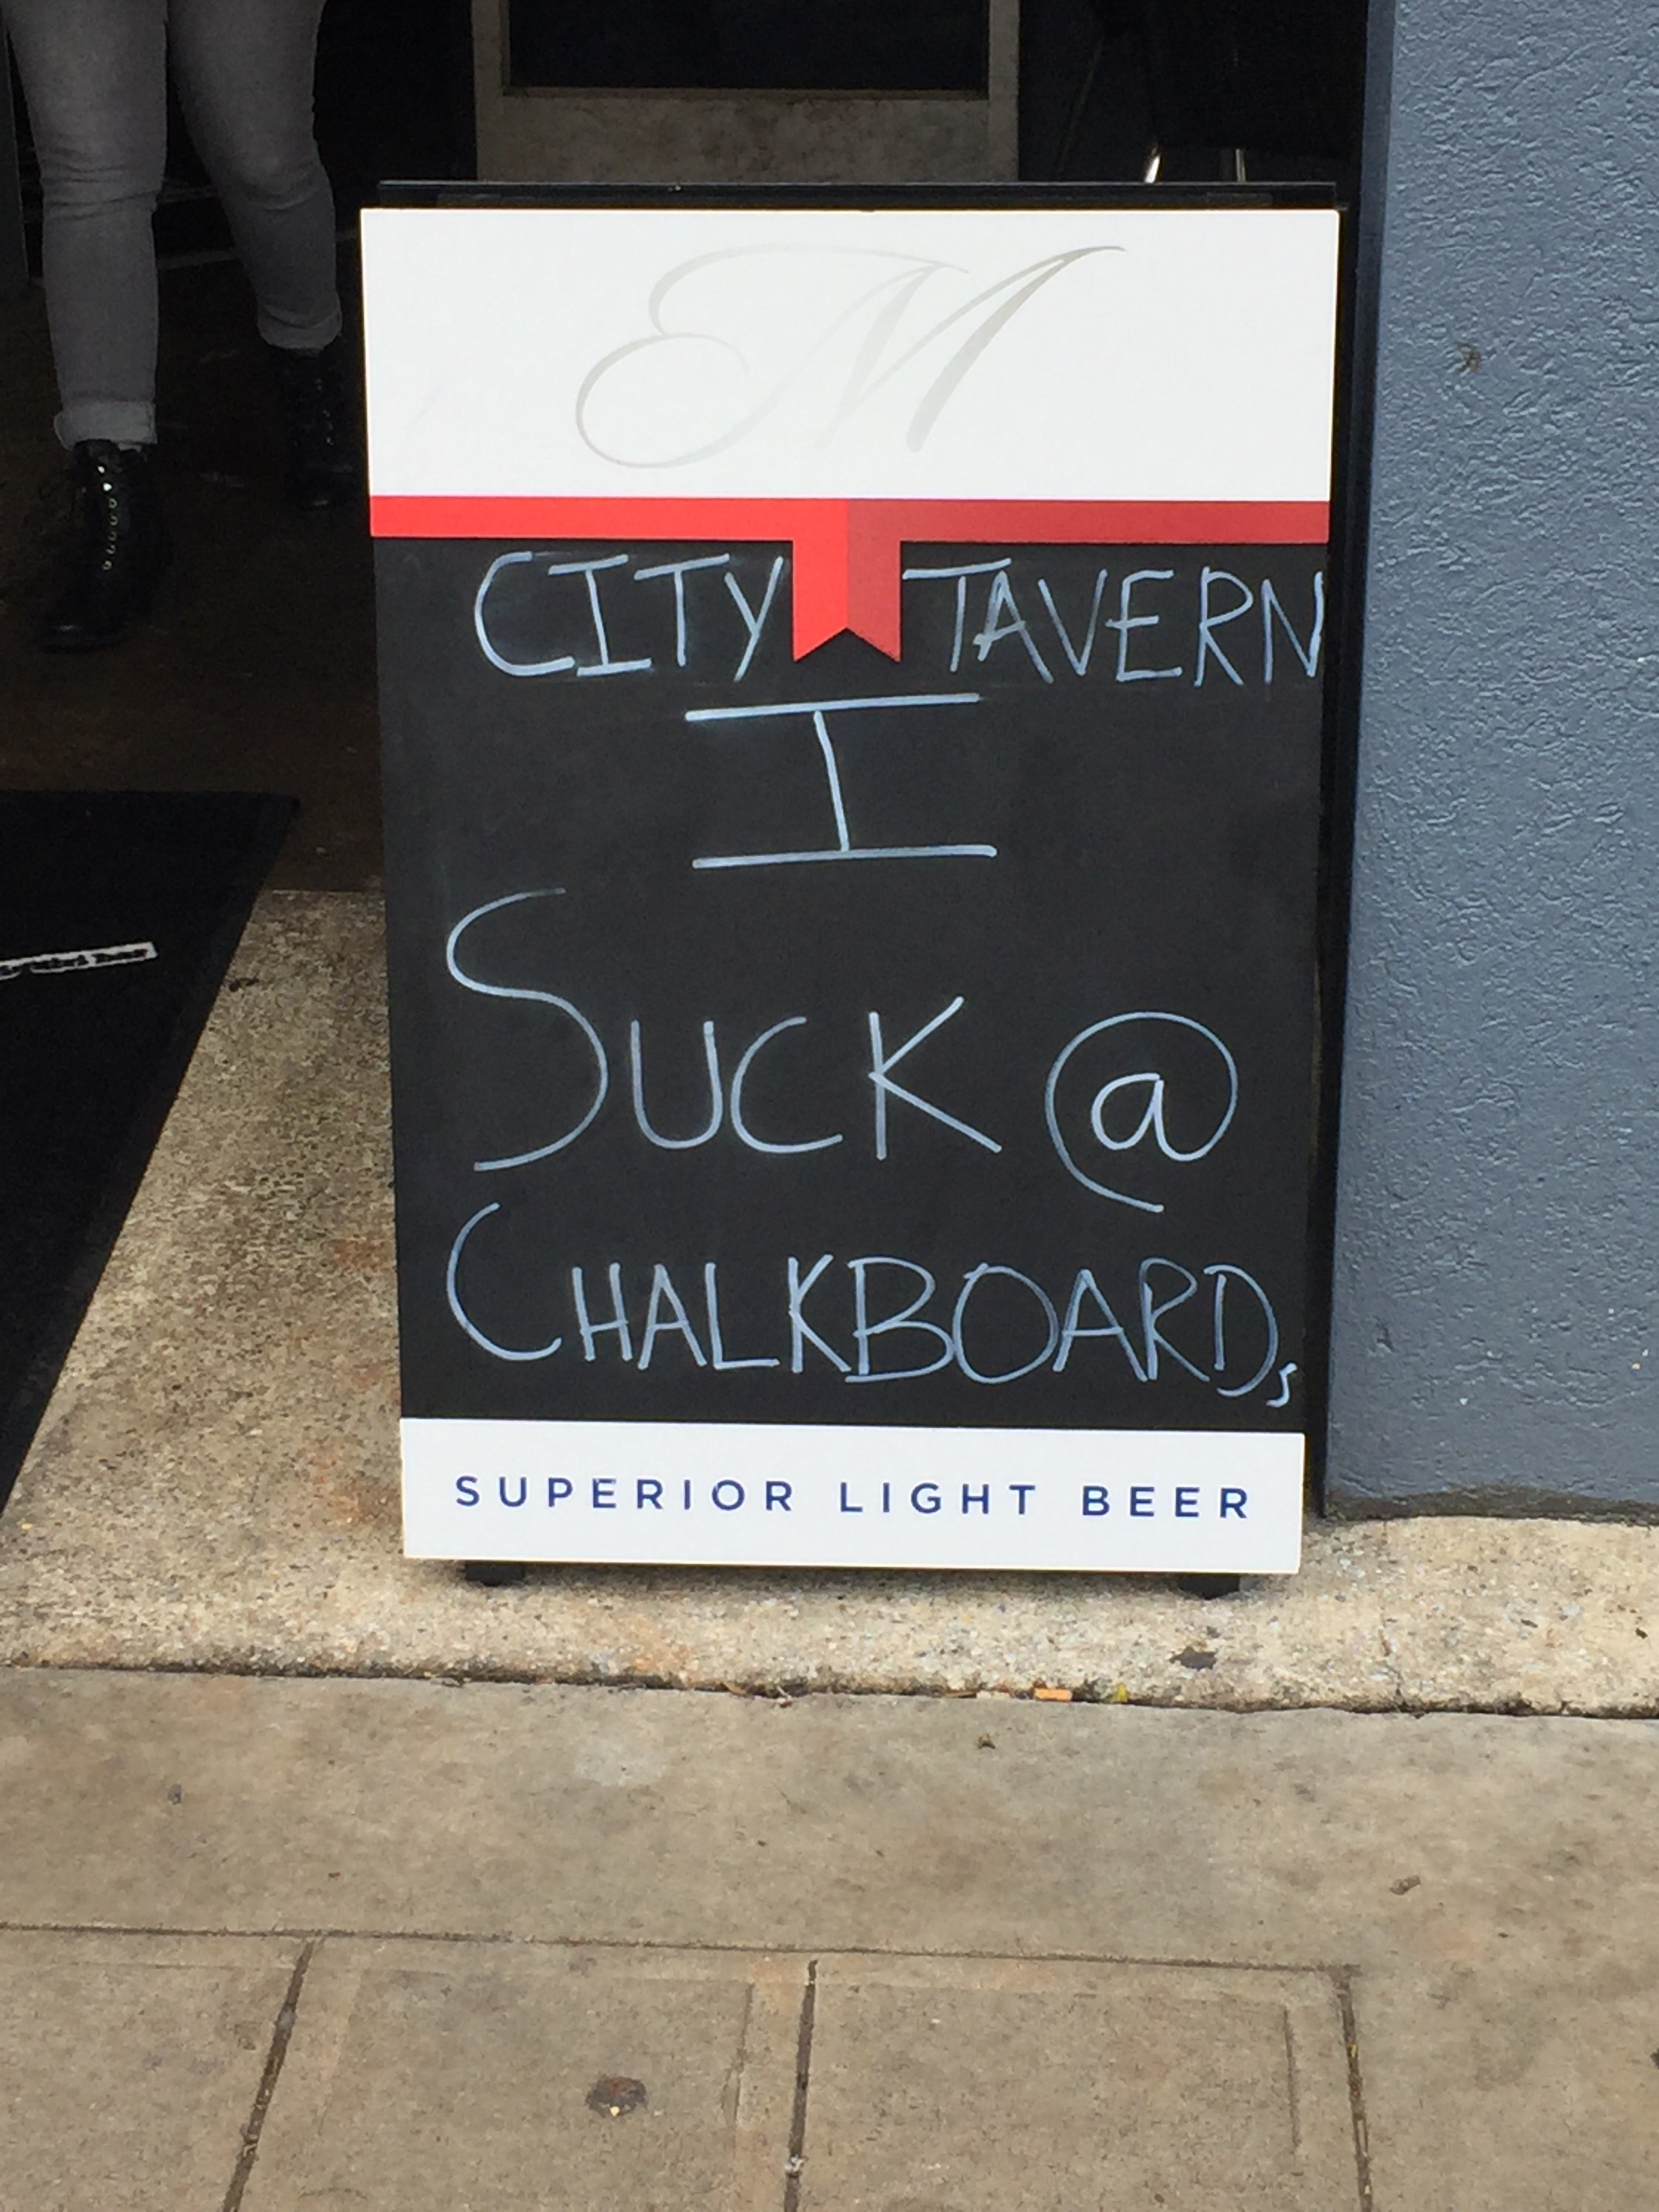 M
CITY TAVERN
I
SUCK @
CHALKBOARDs
SUPERIOR LIGHT BEER